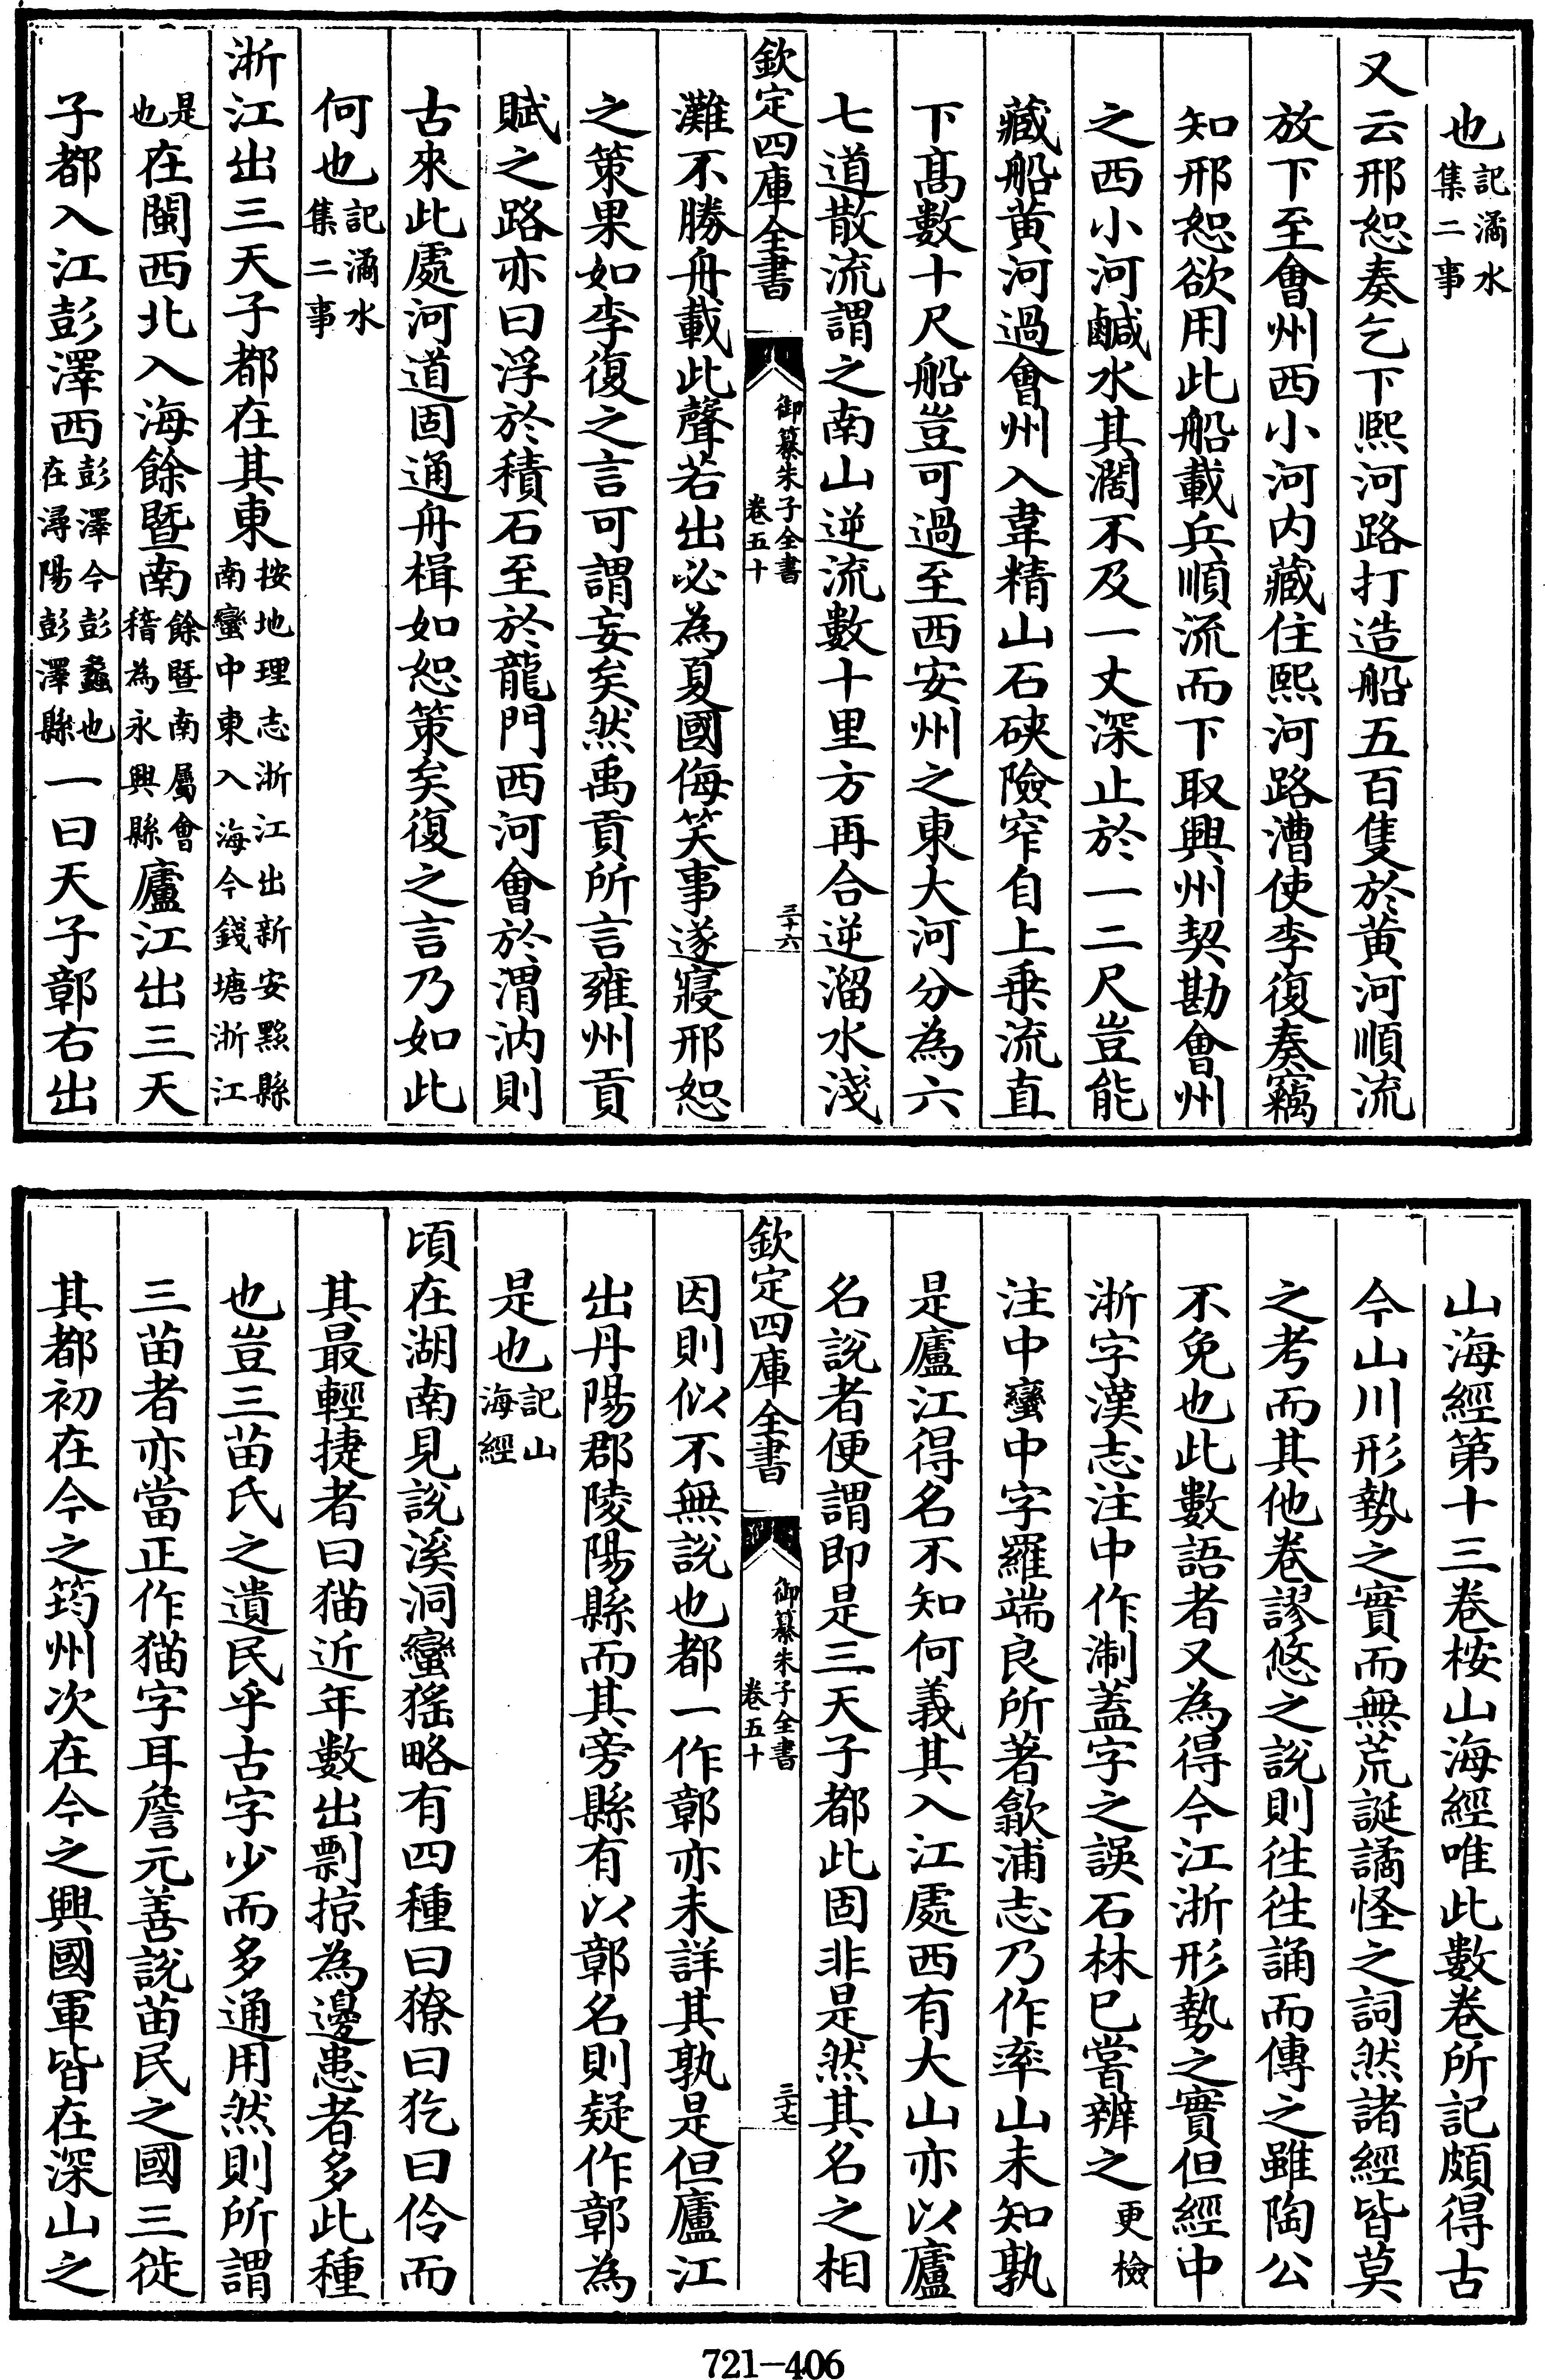 也記潏水集二事
又云邢恕奏乞下熙河路打造船五百隻於黄河順流
放下至會州西小河内藏住熙河路漕使李復奏竊
知邢恕欲用此船載兵順流而下取興州契勘會州
之西小河鹹水其濶不及一丈深止於一二尺豈能
藏船黄河過會州入韋精山石硤險窄自上垂流直
下高數十尺船豈可過至西安州之東大河分為六
七道散流謂之南山逆流數十里方再合逆溜水淺
欽定四庫全書
御纂朱子全書
卷五十
三十六
灘不勝舟載此聲若出必為夏國侮笑事遂寢邢恕
之策果如李復之言可謂妄矣然禹貢所言雍州貢
賦之路亦曰浮於積石至於龍門西河會於渭汭則
古來此處河道固通舟楫如恕策矣復之言乃如此
何也記潏水集二事
浙江出三天子都在其東按地理志浙江出新安黟縣南蠻中東入海今錢塘浙江
是也在閩西北入海餘暨南餘暨南屬會稽為永興縣廬江出三天
子都入江彭澤西彭澤今彭蠡也在潯陽彭澤縣一曰天子鄣右出
山海經第十三卷桉山海經唯此數卷所記頗得古
今山川形勢之實而無荒誕譎怪之詞然諸經皆莫
之考而其他卷謬悠之說則徃徃誦而傳之雖陶公
不免也此數語者又為得今江浙形勢之實但經中
浙字漢志注中作淛蓋字之誤石林已嘗辨之更檢
注中蠻中字羅端良所著歙浦志乃作率山未知孰
是廬江得名不知何義其入江處西有大山亦以廬
名說者便謂即是三天子都此固非是然其名之相
欽定四庫全書
御纂朱子全書
卷五十
三十七
因則似不無說也都一作鄣亦未詳其孰是但廬江
出丹陽郡陵陽縣而其旁縣有以鄣名則疑作鄣為
是也記山海經
頃在湖南見說溪洞蠻猺略有四種曰獠曰犵曰伶而
其最輕捷者曰猫近年數出剽掠為邊患者多此種
也豈三苗氏之遺民乎古字少而多通用然則所謂
三苗者亦當正作猫字耳詹元善說苗民之國三徙
其都初在今之筠州次在今之興國軍皆在深山之
721-406